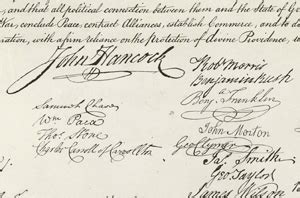 , and that all political connection between them and the State of G
War, conclude Peace, contract Alliances, establish Commerce, and to do
ration, with a firm reliance on the protection of divine Providence,
John Hancock
Robt Morris
Benjamin Rush
Benj. Franklin
Samuel Chase
Wm Paca
Thos. Stone
Charles Carroll of Carrollton
John Morton
Geo Clymer
Jas. Smith
Geo. Taylor
James Wilson